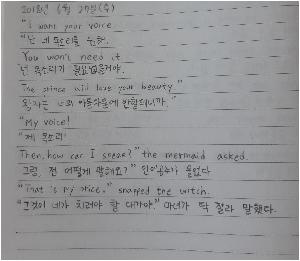 2018년 6월 27일(수)
"I want your voice
"난 네 목소리를 원해.
You won't need it
넌 목소리가 필요없을거야.
The prince will love your beauty"
왕자는 너의 아름다움에 반할테니까."
"My voice!
"제 목소리!
Then, how can I speak?" the mermaid asked.
그럼, 전 어떻게 말해요?" 인어공주가 물었다
"That is my price." snapped the witch.
"그것이 네가 치러야 할 대가야" 마녀가 딱 잘라 말했다.